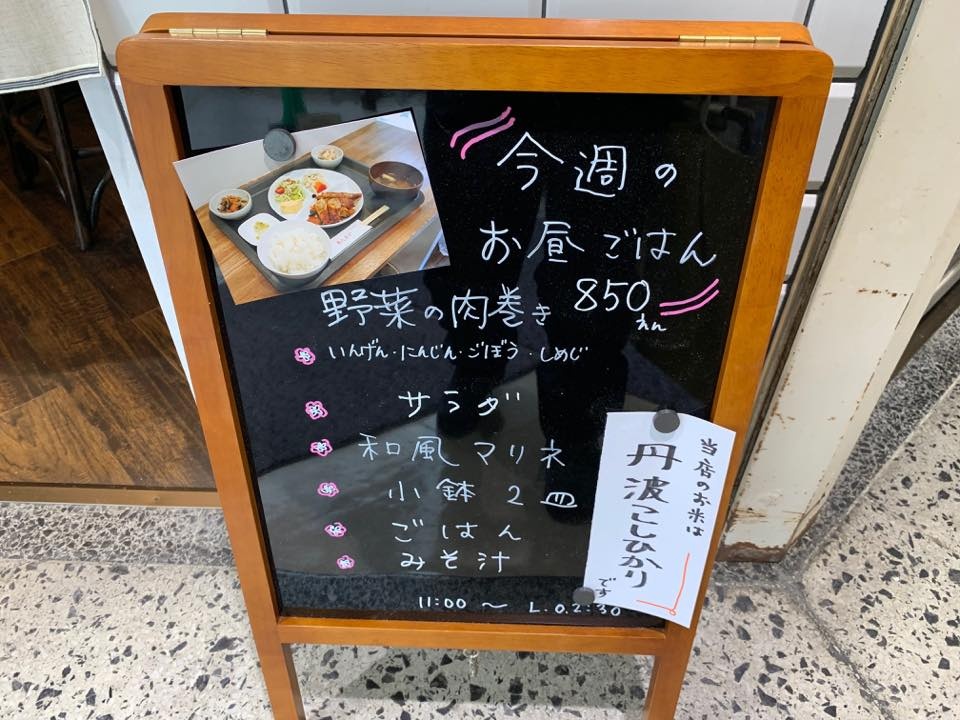 今週の
お昼ごはん
850えん
野菜の肉巻き
いんげん・にんじん・ごぼう・しめじ
サラダ
和風マリネ
小鉢2皿
ごはん
みそ汁
11:00 ～ L.O.2:30
当店のお米は
丹波こしひかり
です